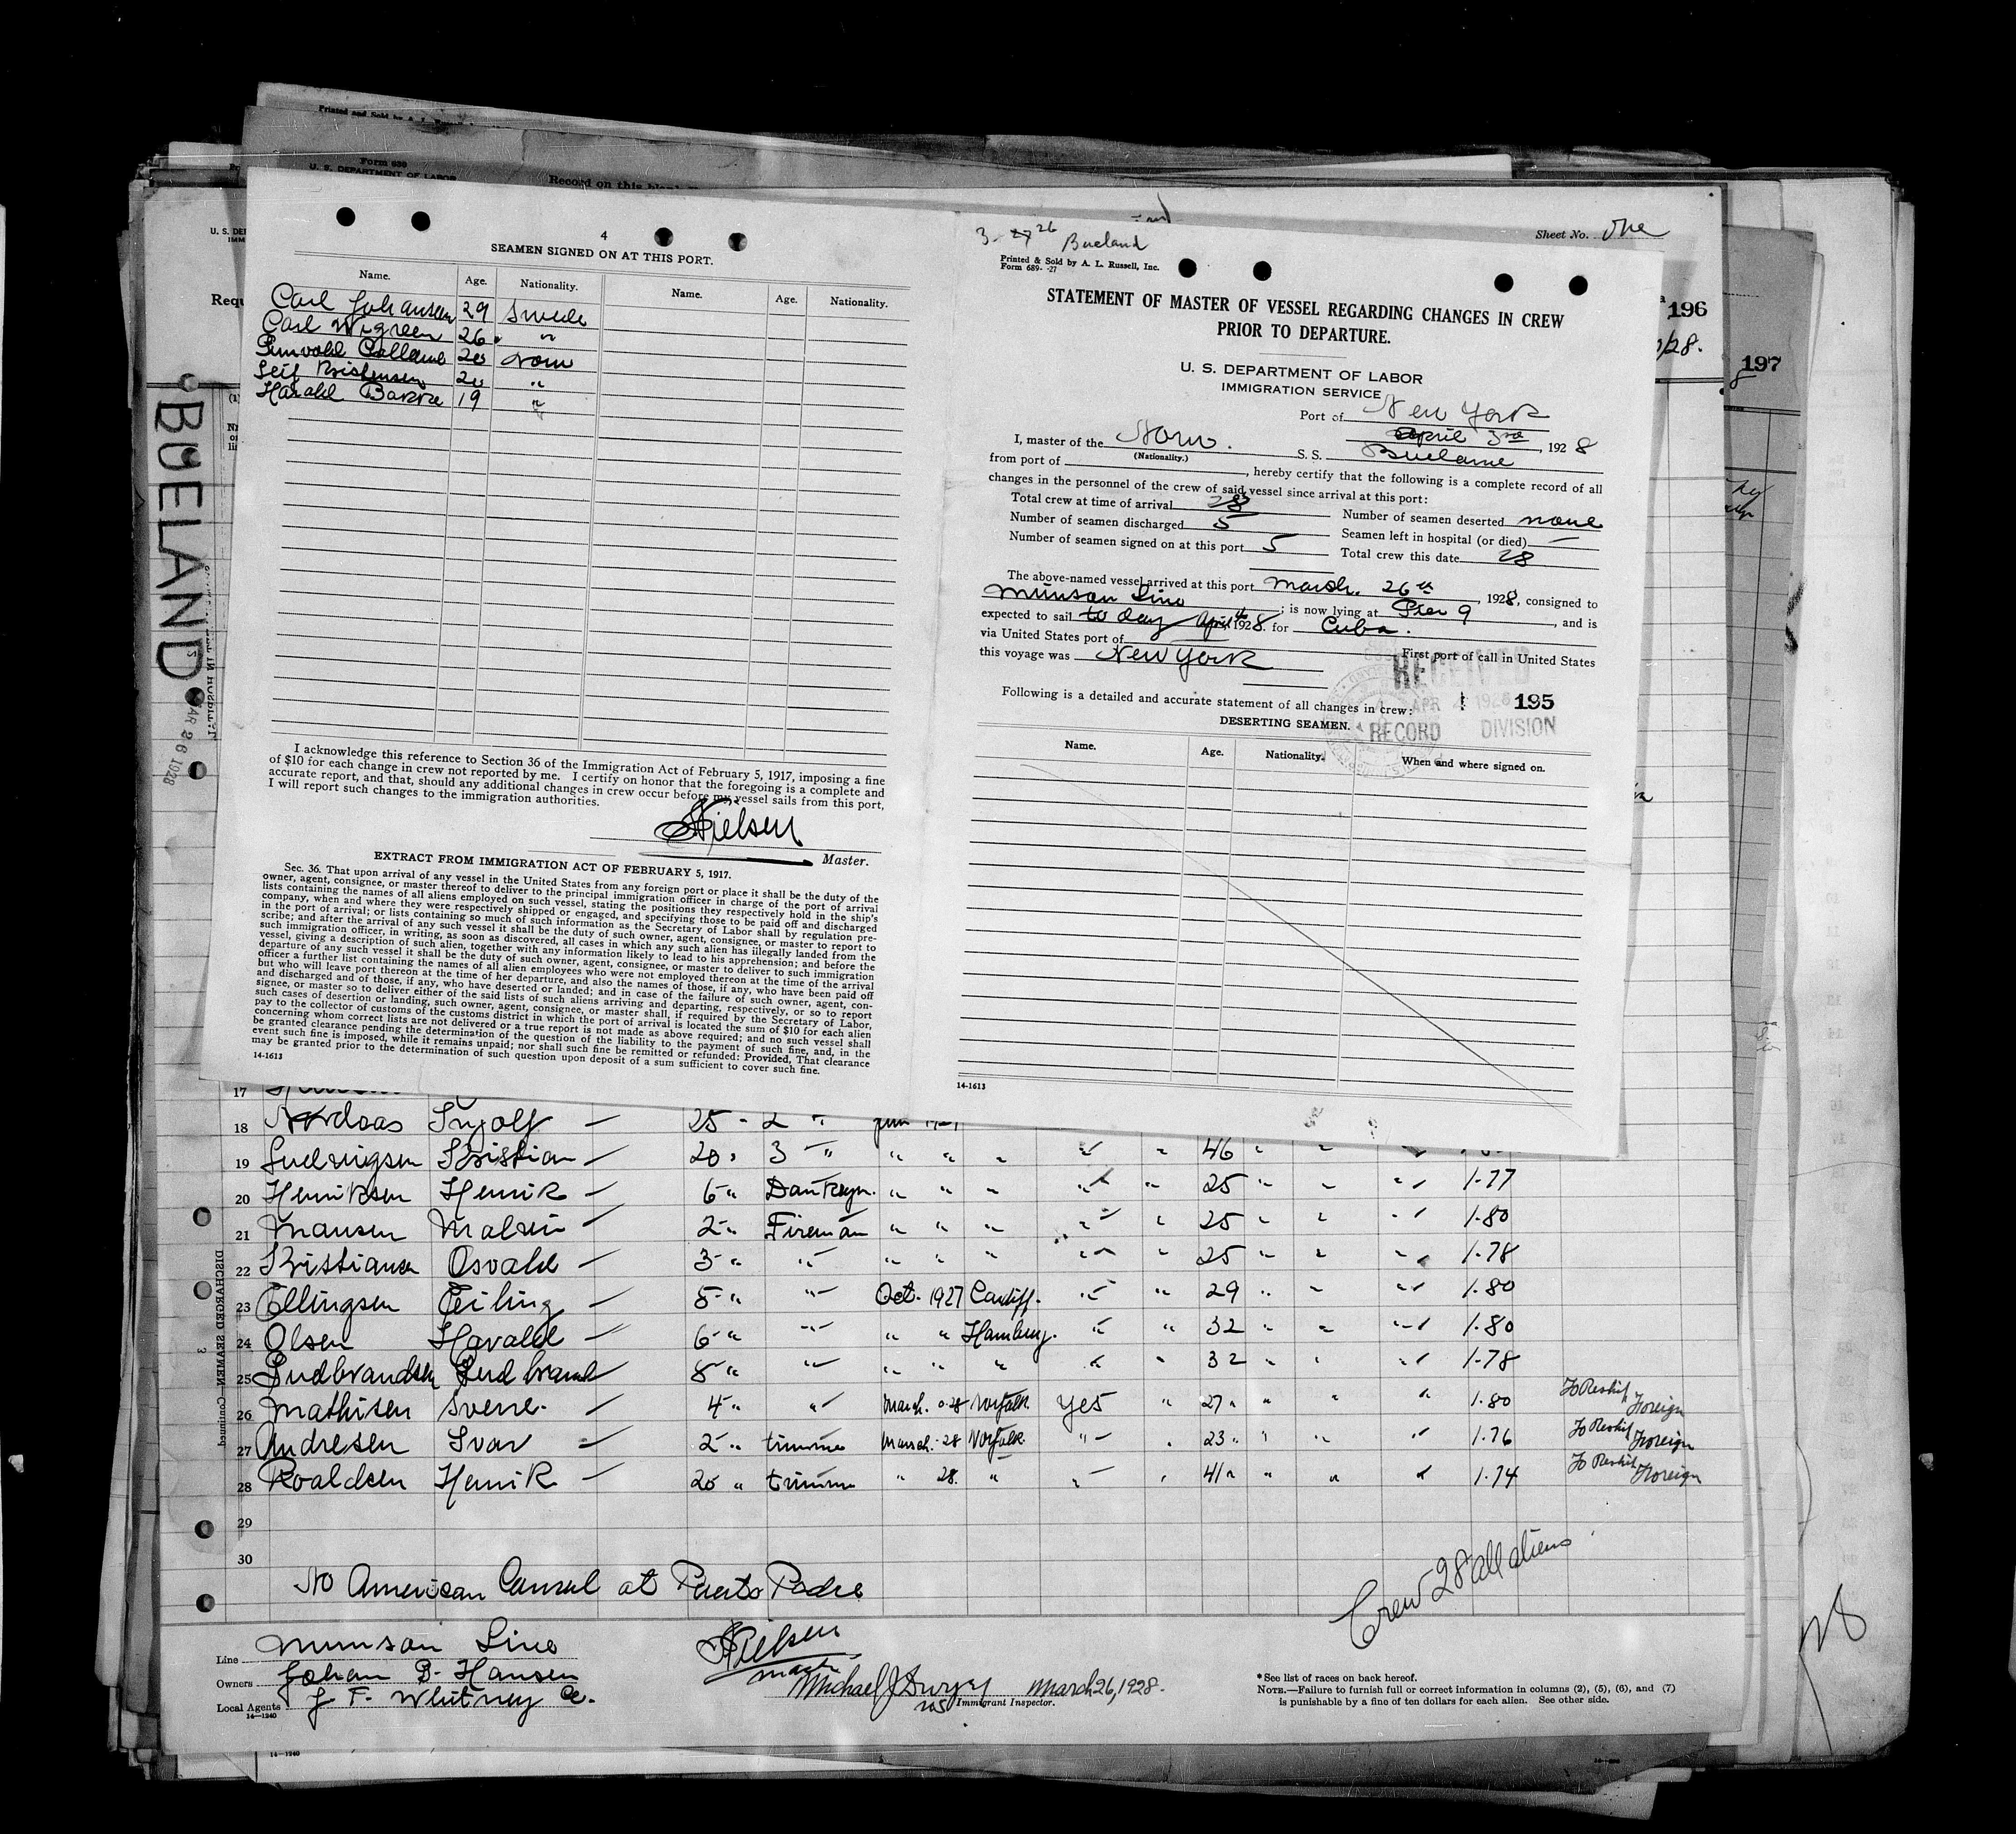 Printed and Sold by A. L.
Form 689
U. S. DEPARTMENT OF LABOR
Record on this blank
4
SEAMEN SIGNED ON AT THIS PORT.
Name. Age. Nationality. Name. Age. Nationality.
Carl Johansen 29 Swede
Carl Wigreen 26 "
20 Norw
Leif Kristensen 20 "
Harald Bakke 19 "
I acknowledge this reference to Section 36 of the Immigration Act of February 5, 1917, imposing a fine
of $10 for each change in crew not reported by me. I certify on honor that the foregoing is a complete and
accurate report, and that, should any additional changes in crew occur before my vessel sails from this port,
I will report such changes to the immigration authorities.
Nielsen
Master.
EXTRACT FROM IMMIGRATION ACT OF FEBRUARY 5, 1917.
Sec. 36. That upon arrival of any vessel in the United States from any foreign port or place it shall be the duty of the
owner, agent, consignee, or master thereof to deliver to the principal immigration officer in charge of the port of arrival
lists containing the names of all aliens employed on such vessel, stating the positions they respectively hold in the ship's
company, when and where they were respectively shipped or engaged, and specifying those to be paid off and discharged
in the port of arrival; or lists containing so much of such information as the Secretary of Labor shall by regulation pre-
scribe; and after the arrival of any such vessel it shall be the duty of such owner, agent, consignee, or master to report to
such immigration officer, in writing, as soon as discovered, all cases in which any such alien has illegally landed from the
vessel, giving a description of such alien, together with any information likely to lead to his apprehension; and before the
departure of any such vessel it shall be the duty of such owner, agent, consignee, or master to deliver to such immigration
officer a further list containing the names of all alien employees who were not employed thereon at the time of the arrival
but who will leave port thereon at the time of her departure, and also the names of those, if any, who have been paid off
and discharged and of those, if any, who have deserted or landed; and in case of the failure of such owner, agent, con-
signee, or master so to deliver either of the said lists of such aliens arriving and departing, respectively, or so to report
such cases of desertion or landing, such owner, agent, consignee, or master shall, if required by the Secretary of Labor,
pay to the collector of customs of the customs district in which the port of arrival is located the sum of $10 for each alien
concerning whom correct lists are not delivered or a true report is not made as above required; and no such vessel shall
be granted clearance pending the determination of the question of the liability to the payment of such fine, and, in the
event such fine is imposed, while it remains unpaid; nor shall such fine be remitted or refunded: Provided, That clearance
may be granted prior to the determination of such question upon deposit of a sum sufficient to cover such fine.
14-1613
3- 27 26 Bueland
Printed & Sold by A. L. Russell, Inc.
Form 689- -27
Sheet No. One
STATEMENT OF MASTER OF VESSEL REGARDING CHANGES IN CREW
PRIOR TO DEPARTURE.
U. S. DEPARTMENT OF LABOR
IMMIGRATION SERVICE
Port of New York
April 3rd, 1928
I, master of the Norw. S. S. Bueland
(Nationality.)
from port of , hereby certify that the following is a complete record of all
changes in the personnel of the crew of said vessel since arrival at this port:
Total crew at time of arrival 28 Number of seamen deserted none
Number of seamen discharged 5 Seamen left in hospital (or died) —
Number of seamen signed on at this port 5 Total crew this date 28
The above-named vessel arrived at this port March 26th, 1928, consigned to
Munson Line; is now lying at Pier 9, and is
expected to sail to day April 1928. for Cuba.
via United States port of First port of call in United States
this voyage was New York
Following is a detailed and accurate statement of all changes in crew:
RECEIVED
APR 4 1928
RECORD DIVISION
195
DESERTING SEAMEN.
Name. Age. Nationality. When and where signed on.
14-1613
196
197
BUELAND
MAR 26 1928
DISCHARGED SEAMEN—Continued
3
17
18 Nordaas Ingolf — 25 - 2 "
19 Ludvigsen Kristian — 20 " 3 " " " " " " 46 " " "
20 Henriksen Henrik — 6 " Donkeym. " " " " " 25 " " " 1.77
21 Hansen — 2 " Fireman " " " " " 25 " " " 1.80
22 Kristiansen Osvald — 3 " " " " " " " 25 " " " 1.78
23 Ellingsen Erling — 5 " " Oct. 1927 Cardiff. " " 29 " " " 1.80
24 Olsen Harald — 6 " " " " Hamburg. " " 32 " " " 1.80
25 Gudbrandsen Gudbrand 8 " " " " " " " 32 " " " 1.78
26 Mathisen Sverre. — 4 " " March. 28 Norfolk Yes " 27 " " " 1.80 To Reship Foreign
27 Andresen Ivar — 2 " trimmer March. 28 Norfolk " " 23 " " " " 1.76 To Reship Foreign
28 Roaldsen Henrik — 20 " trimmer " 28. " " " 41 " " " " 1.74 To Reship Foreign
29
30
No American Consul at Puerto Padre
Crew 28 all aliens
Line Munson Line
Owners Johan G. Hansen
Local Agents J F. Whitney Co.
14—1240
Nielsen
master
Michael J March 26, 1928.
Immigrant Inspector.
*See list of races on back hereof.
NOTE.—Failure to furnish full or correct information in columns (2), (5), (6), and (7)
is punishable by a fine of ten dollars for each alien. See other side.
14—1240
28